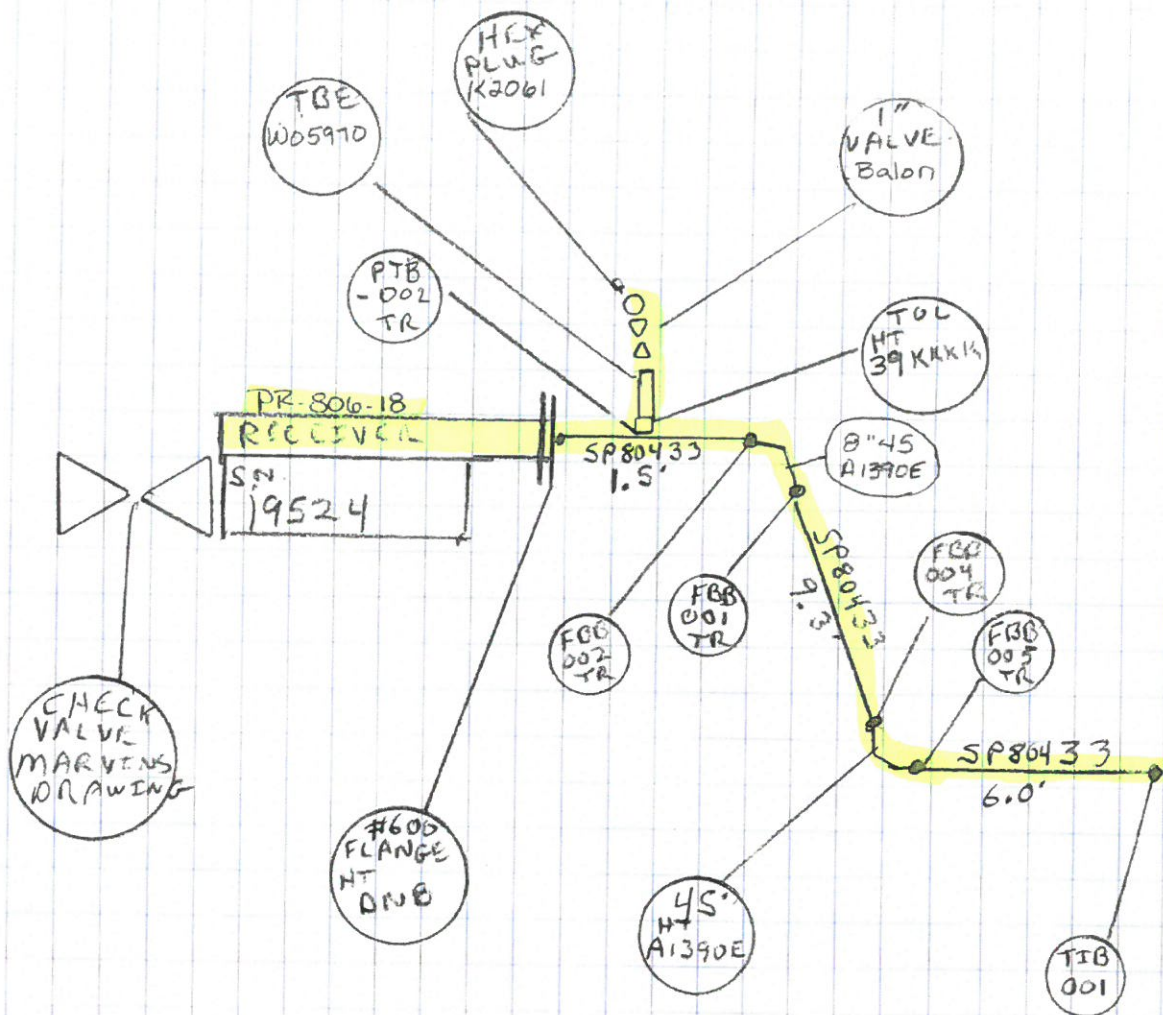 HEX
PLUG
K2061
TBE
W05970
1"
VALVE
Balon
PTB
-002
TR
TOL
HT
39KKK
PR-806-18
RECEIVER
S.N.
19524
SP80433
1.5'
8"45
A1390E
SP80433
9.3'
FBB
002
TR
FBB
001
TR
FBB
004
TR
FBB
005
TR
SP80433
6.0'
CHECK
VALVE
MARVINS
DRAWING
#600
FLANGE
HT
45°
HT
A1390E
TIB
001